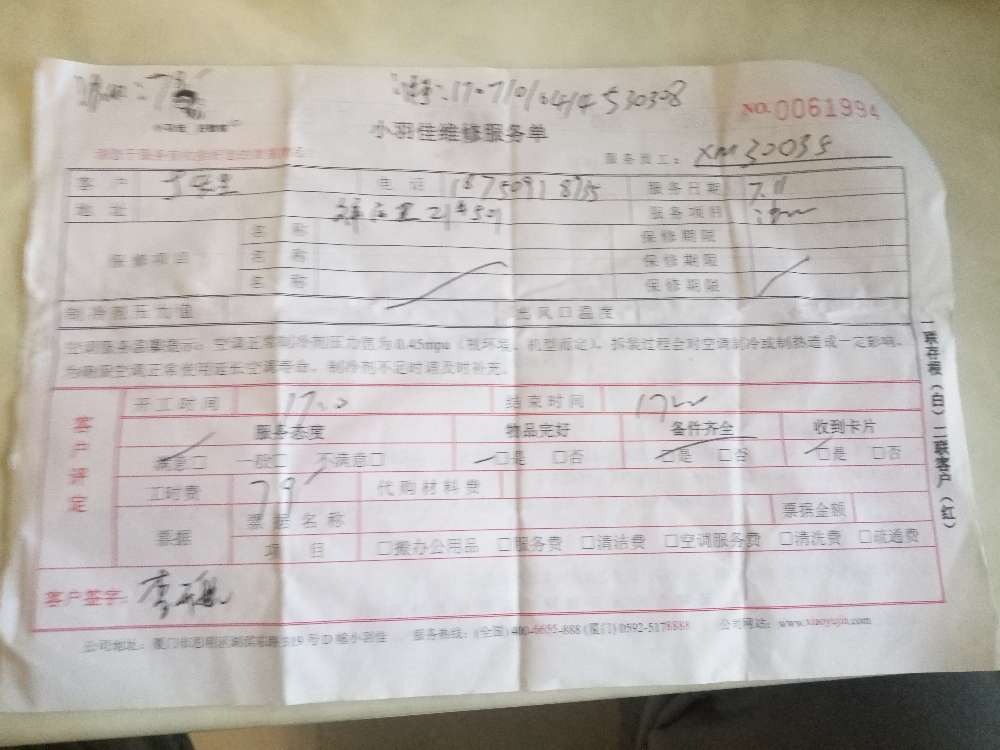 17071010414530308
NO. 0061994
小羽佳维修服务单
服务员工： XM30035
客 户 电 话 服务日期 7.11
地 址 服务项目
名 称 保修期限
保修项目 名 称 保修期限
名 称 保修期限
制冷剂压力值 出风口温度
空调服务温馨提示：空调正常制冷剂压力值为0.45mpa（视环境、机型而定）。拆装过程会对空调制冷或制热造成一定影响。
为确保空调正常使用延长空调寿命，制冷剂不足时请及时补充。
客户评定
开工时间 结束时间
服务态度 物品完好 备件齐全 收到卡片
满意□ 一般□ 不满意□ □是 □否 □是 □否 □是 □否
工时费 79 代购材料费
票据 票据名称 票据金额
项 目 □搬办公用品 □服务费 □清洁费 □空调服务费 □清洗费 □疏通费
客户签字：
公司地址： 服务热线：(全国) 400-6655-888 (厦门) 0592-5178888 公司网站： www.xiaoyujia.com
一联存根（白）二联客户（红）